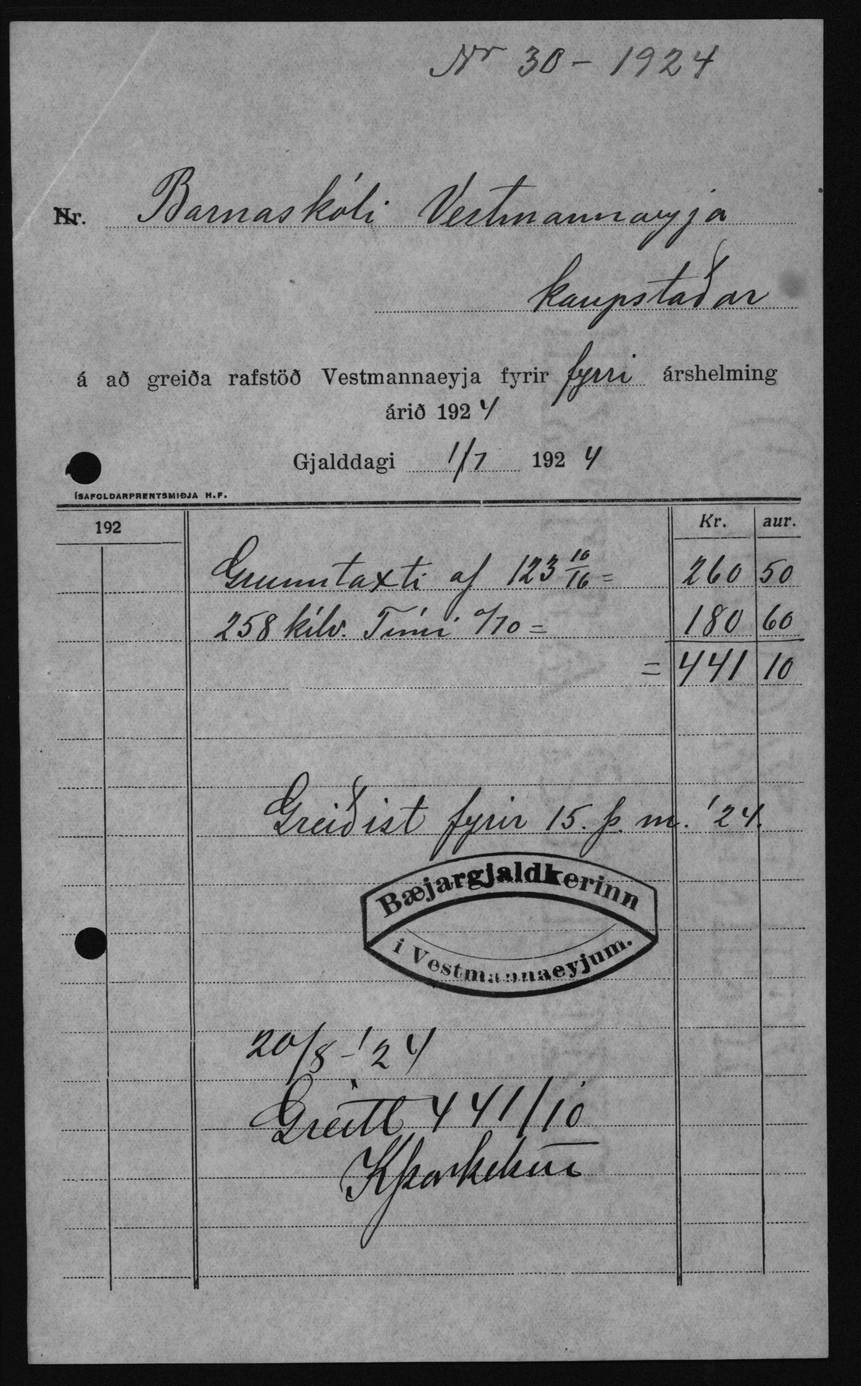 Nr 30 - 1924
Nr. Barnaskóli Vestmannaeyja
kaupstaðar
á að greiða rafstöð Vestmannaeyja fyrir fyrri árshelming
árið 1924
Gjalddagi 1/7 1924
ÍSAFOLDARPRENTSMIÐJA H.F.
192 Kr. aur.
Grunntaxti af 123 10/16 = 260 50
258 kílv. Tími a/70 = 180 60
= 441 10
Greiðist fyrir 15. þ. m. '24.
Bæjargjaldkerinn
í Vestmannaeyjum.
20/8 - '24
Greitt 441/10